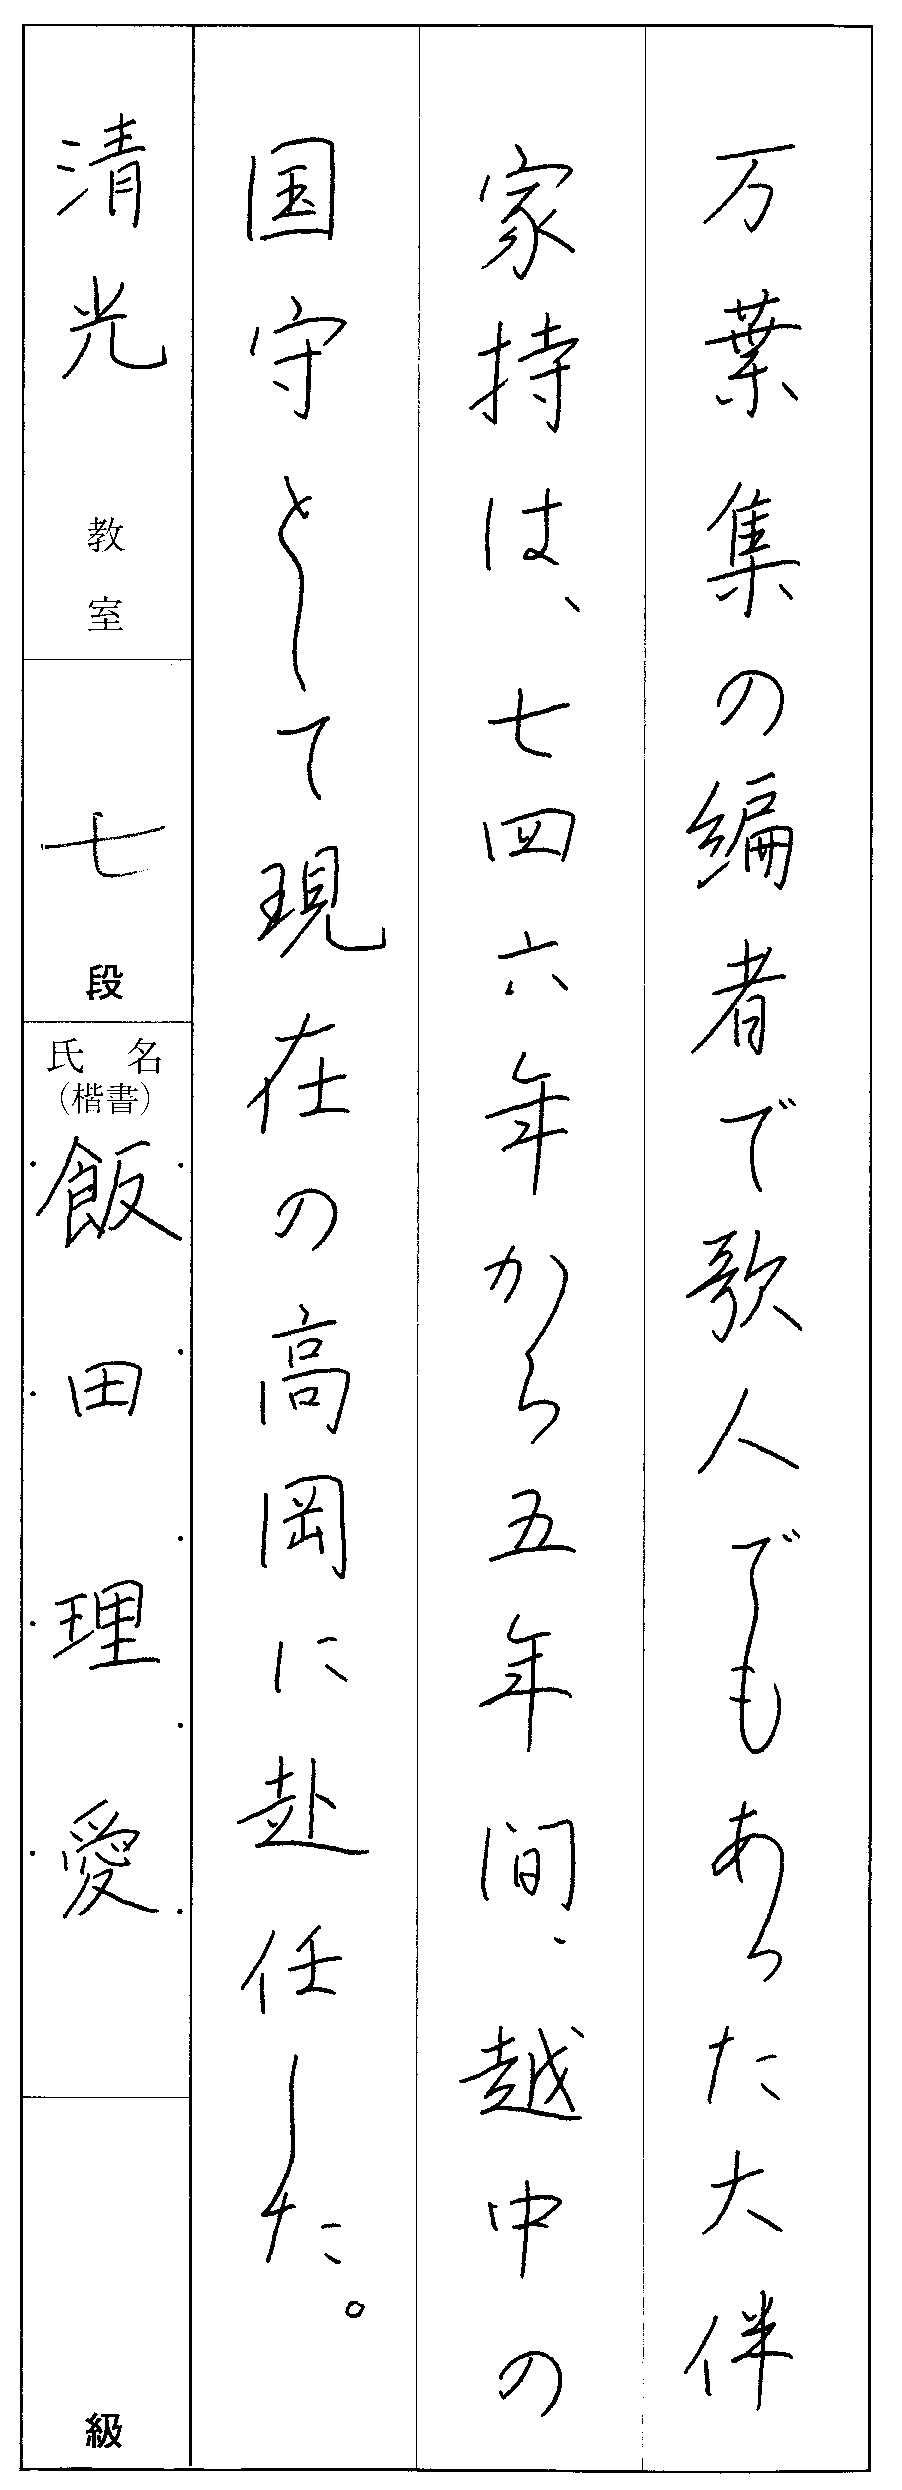 万葉集の編者で歌人でもあった大伴
家持は、七四六年から五年間、越中の
国守として現在の高岡に赴任した。
清光教室
七段
氏名
(楷書)
飯田理愛
級